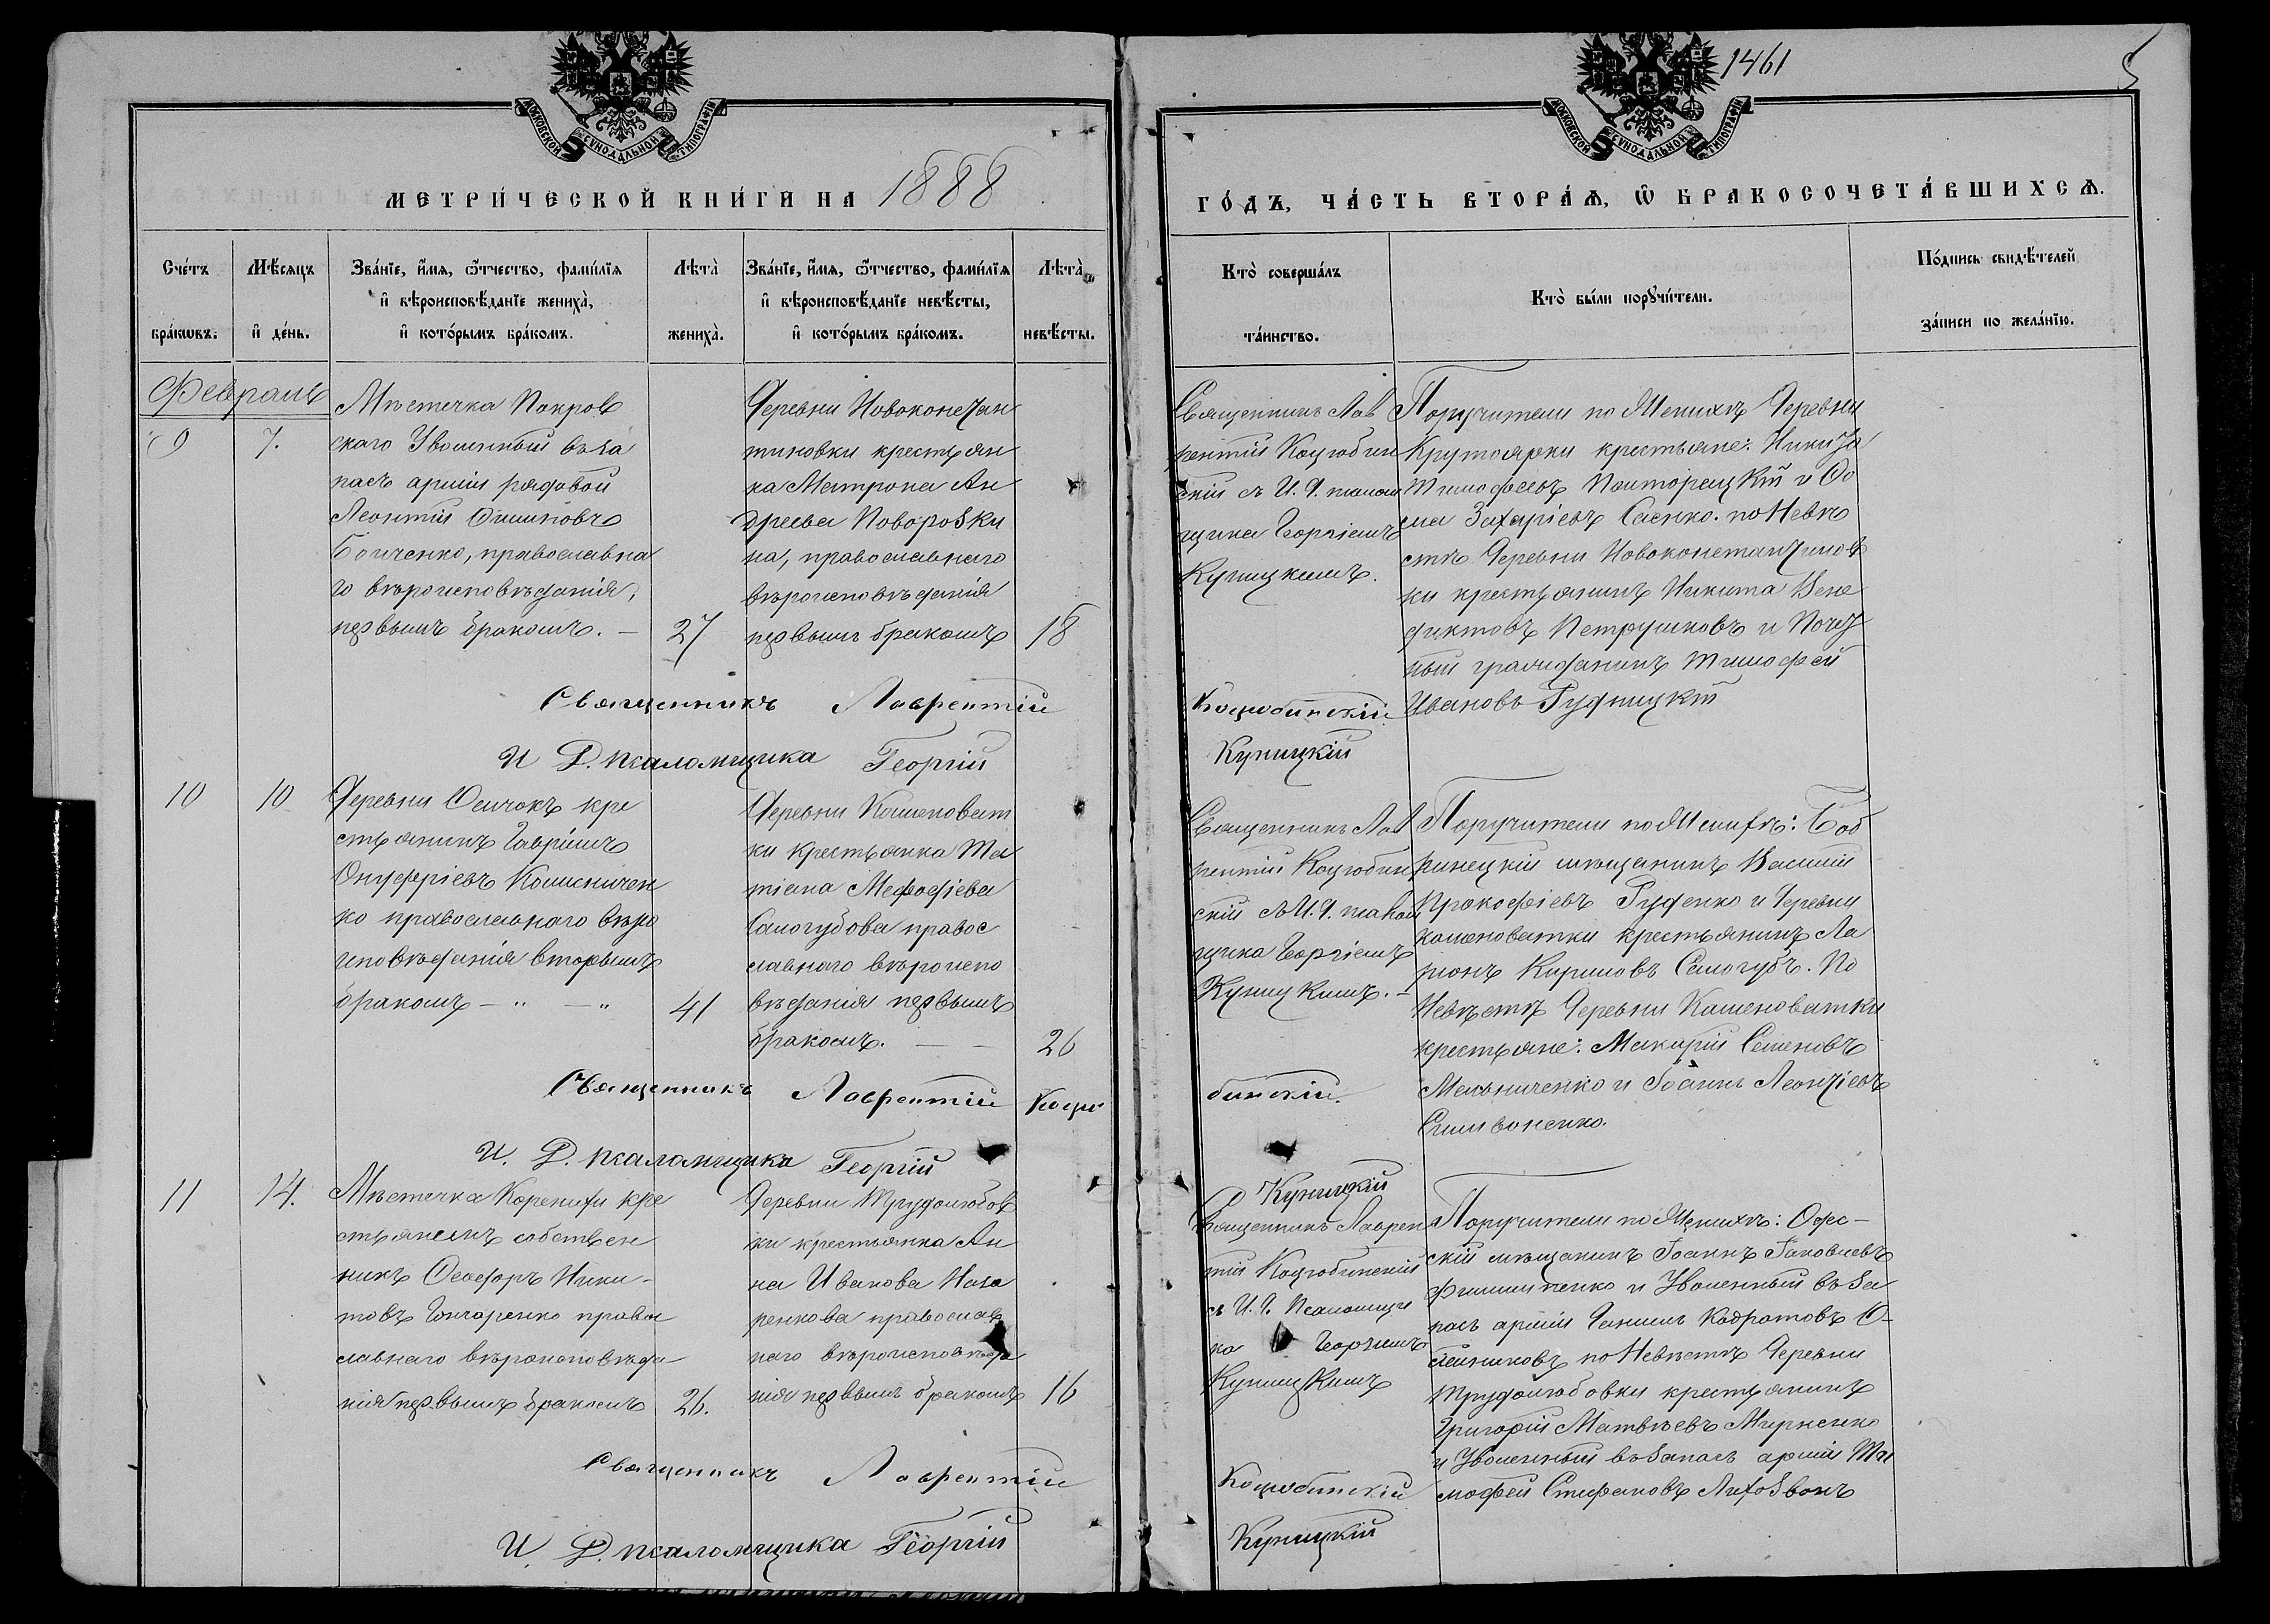 1461
5
МОСКОВСКОЙ СѴНОДАЛЬНОЙ ТИПОГРАФІИ
МОСКОВСКОЙ СѴНОДАЛЬНОЙ ТИПОГРАФІИ
МЕТРИ́ЧЕСКОЙ КНИ́ГИ НА 1888
ГО́ДЪ, ЧА́СТЬ ВТОРА́Ѧ, Ѡ БРАКОСОЧЕТА́ВШИХСѦ.
Сче́тъ
бра́кѡвъ.
Мѣ́сяцъ
и҆ де́нь.
Зва́нїе, и҆́мя, ѻ҆́тчество, фами́лїя
и҆ вѣроисповѣ́данїе жениха̀,
и҆ кото́рымъ бра́комъ.
Лѣта̀
жениха̀.
Зва́нїе, и҆́мя, ѻ҆́тчество, фами́лїя
и҆ вѣроисповѣ́данїе невѣ́сты,
и҆ кото́рымъ бра́комъ.
Лѣта̀
невѣ́сты.
Кто̀ соверша́лъ
та́инство.
Кто̀ бы́ли порꙋчи́тели.
По́дпись свидѣ́телей
за́писи по жела́нїю.
Февраль
9
7.
Мѣстечка Покров
скаго Уволенный въ за
пасъ арміи рядовой
Леонтій
Бойченко, православна
го вѣроисповѣданія,
первымъ бракомъ. —
27
Деревни Новоконстан
тиновки крестьян
ка Матрона Ан
дреева Поворозки
на, православнаго
вѣроисповѣданія
первымъ бракомъ
18
Священникъ Лав
рентій Коцюбин
скій съ И. Д. псалом
щика Георгіемъ
Куницкимъ.
Поручители по Женихѣ Деревни
Крутоярки крестьяне: Никита
Тимофеевъ Полторацкій и Фо
ма Захаріевъ Саенко. по Невѣ
стѣ Деревни Новоконстантинов
ки крестьянинъ Никита Вене
диктовъ Петрушковъ и Почет
ный гражданинъ Тимофей
Ивановъ Рудницкій
Священникъ Лаврентій Коцюбинскій
И Д. псаломщика Георгій Куницкій
10
10
Деревни Осичокъ кре
стьянинъ Гавріилъ
Онуфріевъ Колисничен
ко православнаго вѣро
исповѣданія вторымъ
бракомъ — " — "
41
Деревни Каменоват
ки крестьянка Та
тіана Мефодіева
Самогубова правос
лавнаго вѣроиспо
вѣданія первымъ
бракомъ. — —
26
Священникъ Лав
рентій Коцюбин
скій съ И. Д. псалом
щика Георгіемъ
Куницкимъ. —
Поручители по Женихѣ: Боб
ринецкій мѣщанинъ Василій
Прокофіевъ Руденко и Деревни
Каменоватки крестьянинъ Ла
ріонъ Кириловъ Самогубъ. По
Невѣстѣ Деревни Каменоватки
крестьяне: Макарій Семеновъ
Мельниченко и Іоаннъ Леонтіевъ
Священникъ Лаврентій Коцюбинскій.
И. Д. псаломщика Георгій Куницкій
11
14.
Мѣстечка Коренихи кре
стьянинъ собствен
никъ Феодоръ Ники-
товъ Гончаренко право
славнаго вѣроисповѣда-
нія первымъ бракомъ
26.
Деревни Трудолюбов
ки крестьянка Ан
на Иванова Наза
ренкова православ
наго вѣроисповѣда
нія первымъ бракомъ
16
Священникъ Лаврен
тій Коцюбинскій
съ И. Д. Псаломщи
ка Георгіемъ
Куницкимъ
Поручители по Женихѣ: Одес-
скій мѣщанинъ Іоаннъ Іаковлевъ
Филипенко и Уволенный въ за
пасъ арміи Даніилъ Кодратовъ О-
лейниковъ по Невѣстѣ Деревни
Трудолюбовки крестьянинъ
Григорій Матвѣевъ Мирненко
и Уволенный въ запасъ арміи Ти
мофей Стефановъ Лихозвонъ
Священникъ Лаврентій Коцюбинскій
И. Д. псаломщика Георгій Куницкій